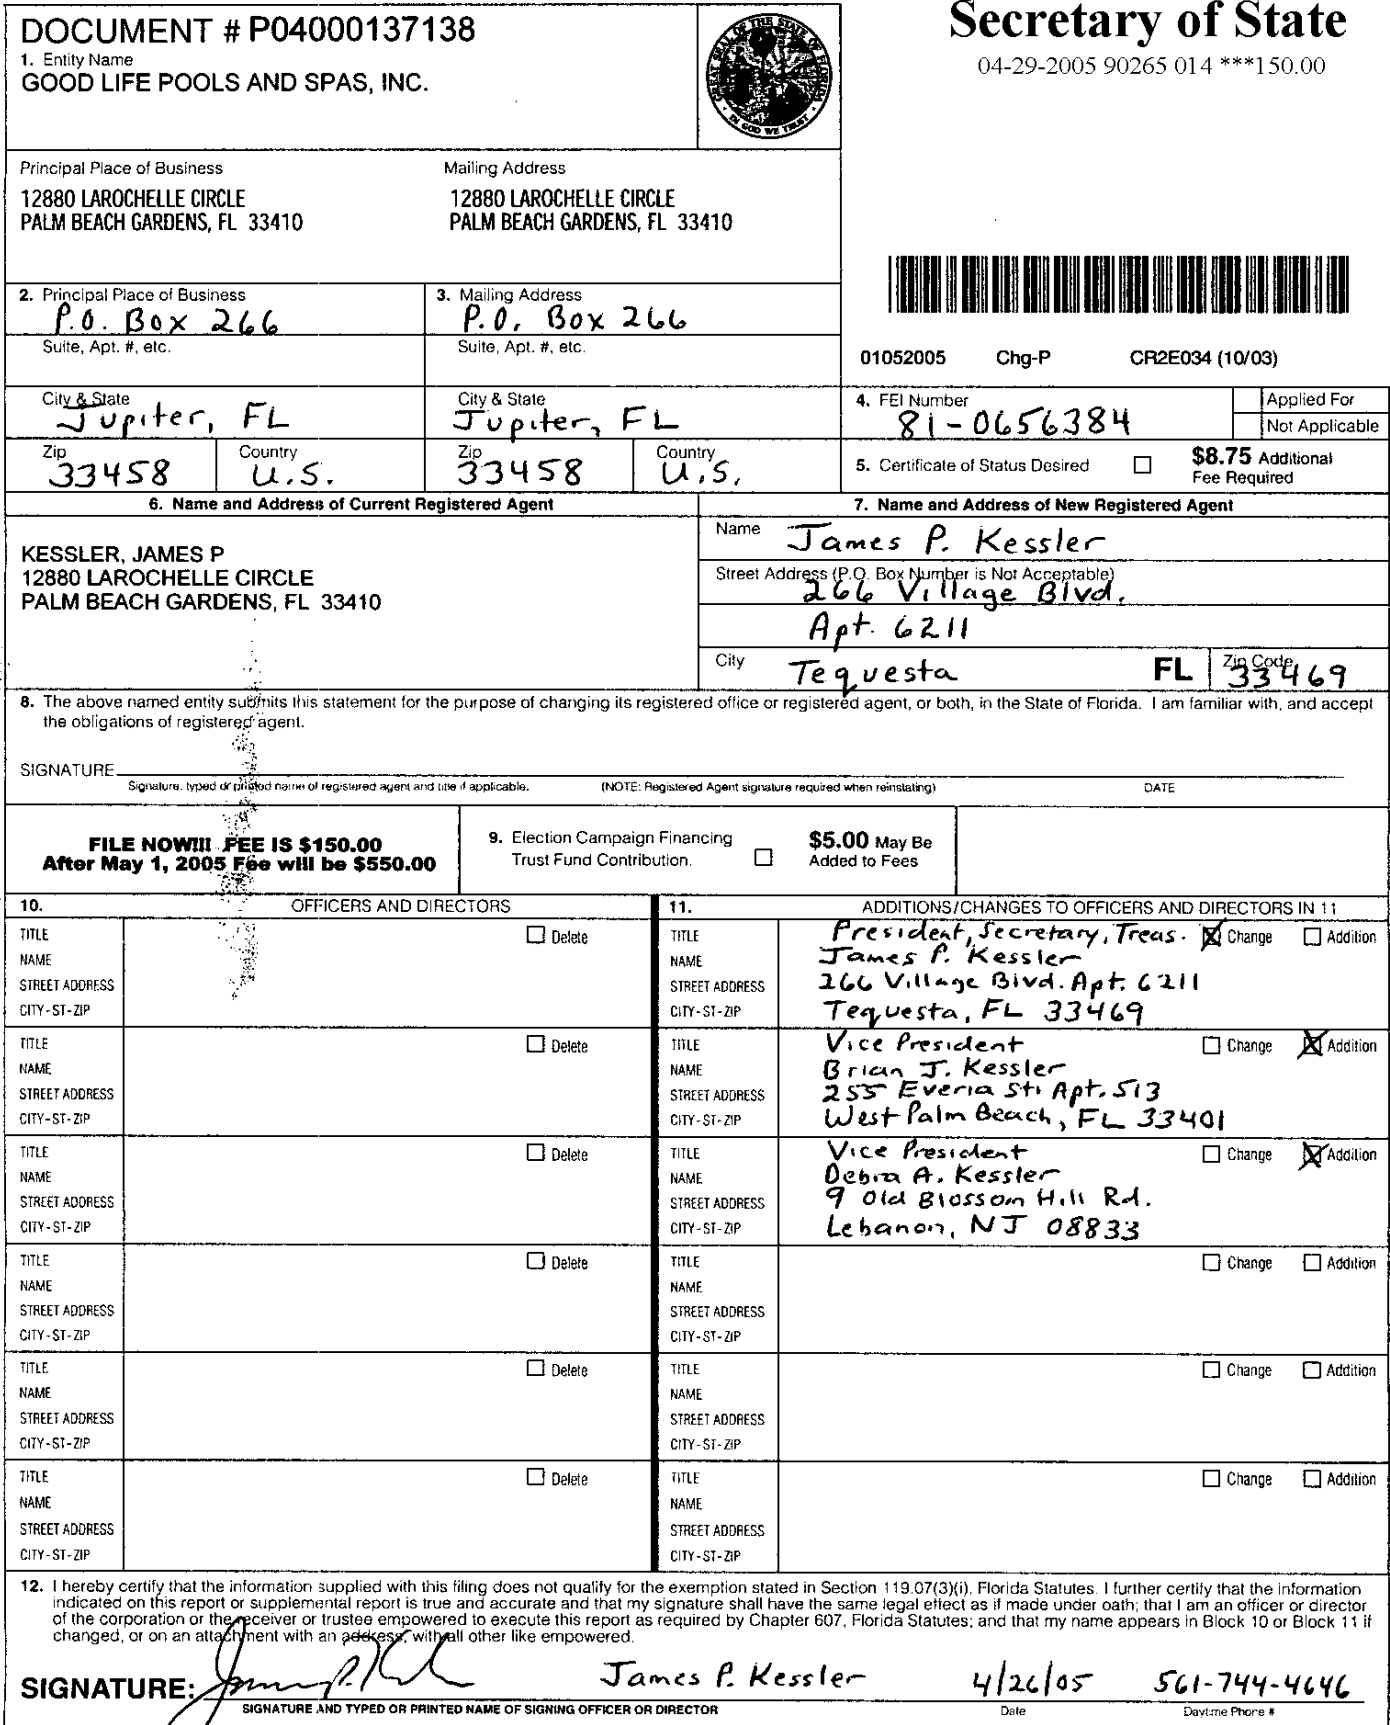 DOCUMENT # P04000137138
1. Entity Name
GOOD LIFE POOLS AND SPAS, INC.
GREAT SEAL OF THE STATE OF FLORIDA
IN GOD WE TRUST
Secretary of State
04-29-2005 90265 014 ***150.00
Principal Place of Business
12880 LAROCHELLE CIRCLE
PALM BEACH GARDENS, FL 33410
Mailing Address
12880 LAROCHELLE CIRCLE
PALM BEACH GARDENS, FL 33410
2. Principal Place of Business
P.O. Box 266
Suite, Apt. #, etc.
City & State
Jupiter, FL
Zip
33458
Country
U.S.
3. Mailing Address
P.O. Box 266
Suite, Apt. #, etc.
City & State
Jupiter, FL
Zip
33458
Country
U.S.
01052005 Chg-P CR2E034 (10/03)
4. FEI Number
81-0656384
Applied For
Not Applicable
5. Certificate of Status Desired
$8.75 Additional
Fee Required
6. Name and Address of Current Registered Agent
KESSLER, JAMES P
12880 LAROCHELLE CIRCLE
PALM BEACH GARDENS, FL 33410
7. Name and Address of New Registered Agent
Name James P. Kessler
Street Address (P.O. Box Number is Not Acceptable)
266 Village Blvd.
Apt. 6211
City Tequesta FL Zip Code 33469
8. The above named entity submits this statement for the purpose of changing its registered office or registered agent, or both, in the State of Florida. I am familiar with, and accept
the obligations of registered agent.
SIGNATURE
Signature, typed or printed name of registered agent and title if applicable. (NOTE: Registered Agent signature required when reinstating) DATE
FILE NOW!!! FEE IS $150.00
After May 1, 2005 Fee will be $550.00
9. Election Campaign Financing
Trust Fund Contribution.
$5.00 May Be
Added to Fees
10. OFFICERS AND DIRECTORS
TITLE Delete
NAME
STREET ADDRESS
CITY-ST-ZIP
TITLE Delete
NAME
STREET ADDRESS
CITY-ST-ZIP
TITLE Delete
NAME
STREET ADDRESS
CITY-ST-ZIP
TITLE Delete
NAME
STREET ADDRESS
CITY-ST-ZIP
TITLE Delete
NAME
STREET ADDRESS
CITY-ST-ZIP
TITLE Delete
NAME
STREET ADDRESS
CITY-ST-ZIP
11. ADDITIONS/CHANGES TO OFFICERS AND DIRECTORS IN 11
TITLE President, Secretary, Treas. Change Addition
NAME James P. Kessler
STREET ADDRESS 266 Village Blvd. Apt. 6211
CITY-ST-ZIP Tequesta, FL 33469
TITLE Vice President Change Addition
NAME Brian J. Kessler
STREET ADDRESS 255 Everia St. Apt. 513
CITY-ST-ZIP West Palm Beach, FL 33401
TITLE Vice President Change Addition
NAME Debra A. Kessler
STREET ADDRESS 9 Old Blossom Hill Rd.
CITY-ST-ZIP Lebanon, NJ 08833
TITLE Change Addition
NAME
STREET ADDRESS
CITY-ST-ZIP
TITLE Change Addition
NAME
STREET ADDRESS
CITY-ST-ZIP
TITLE Change Addition
NAME
STREET ADDRESS
CITY-ST-ZIP
12. I hereby certify that the information supplied with this filing does not qualify for the exemption stated in Section 119.07(3)(i), Florida Statutes. I further certify that the information
indicated on this report or supplemental report is true and accurate and that my signature shall have the same legal effect as if made under oath; that I am an officer or director
of the corporation or the receiver or trustee empowered to execute this report as required by Chapter 607, Florida Statutes; and that my name appears in Block 10 or Block 11 if
changed, or on an attachment with an address, with all other like empowered.
SIGNATURE: James P. Kessler 4/26/05 561-744-4646
SIGNATURE AND TYPED OR PRINTED NAME OF SIGNING OFFICER OR DIRECTOR Date Daytime Phone #